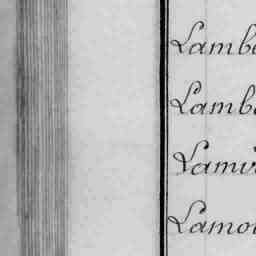 Lambe
Lambe
Lamvi
Lamou